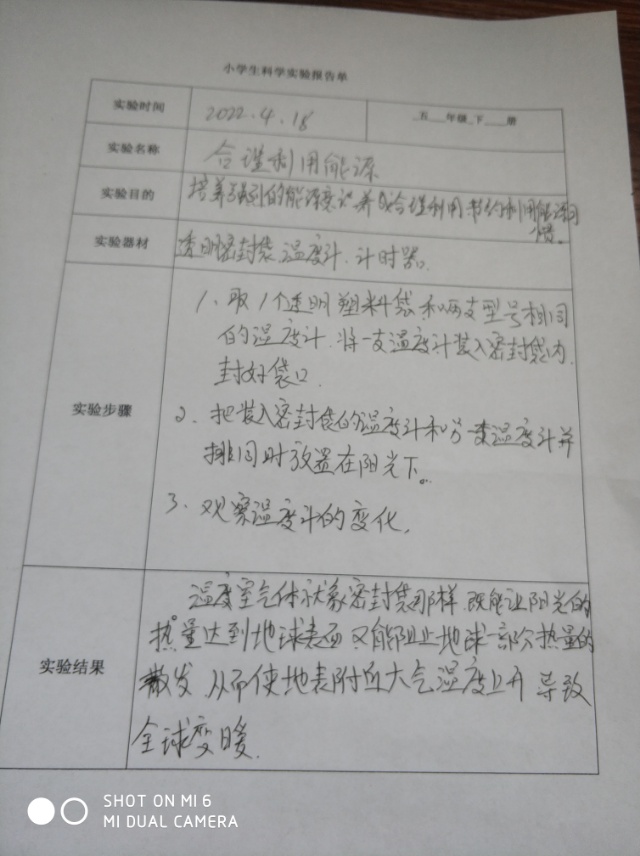 小学生科学实验报告单
实验时间 2022.4.18 五 年级 下 册
实验名称 合理利用能源
实验目的 培养强烈的能源意识 养成合理利用 节约利用能源习
惯。
实验器材 透明密封袋 温度计、计时器.
1、取1个透明塑料袋和两支型号相同
的温度计.将一支温度计装入密封袋内.
封好袋口.
实验步骤
2、把装入密封袋的温度计和另一支温度计并
排同时放置在阳光下。
3、观察温度计的变化.
温度室气体就象密封袋那样.既能让阳光的
热量达到地球表面 又能阻止地球一部分热量的
实验结果
散发 从而使地表附近大气温度上升 导致
全球变暖.
SHOT ON MI 6
MI DUAL CAMERA